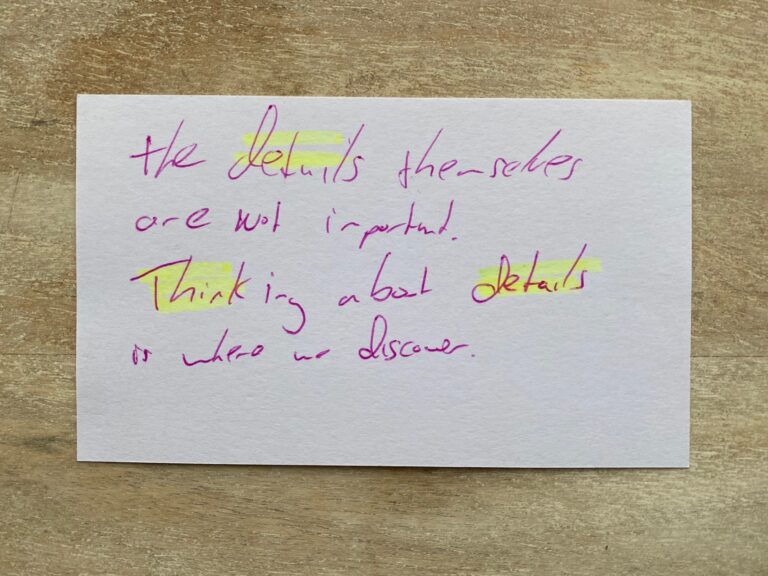 the details themselves
are not important.
Thinking about details
is where we discover.